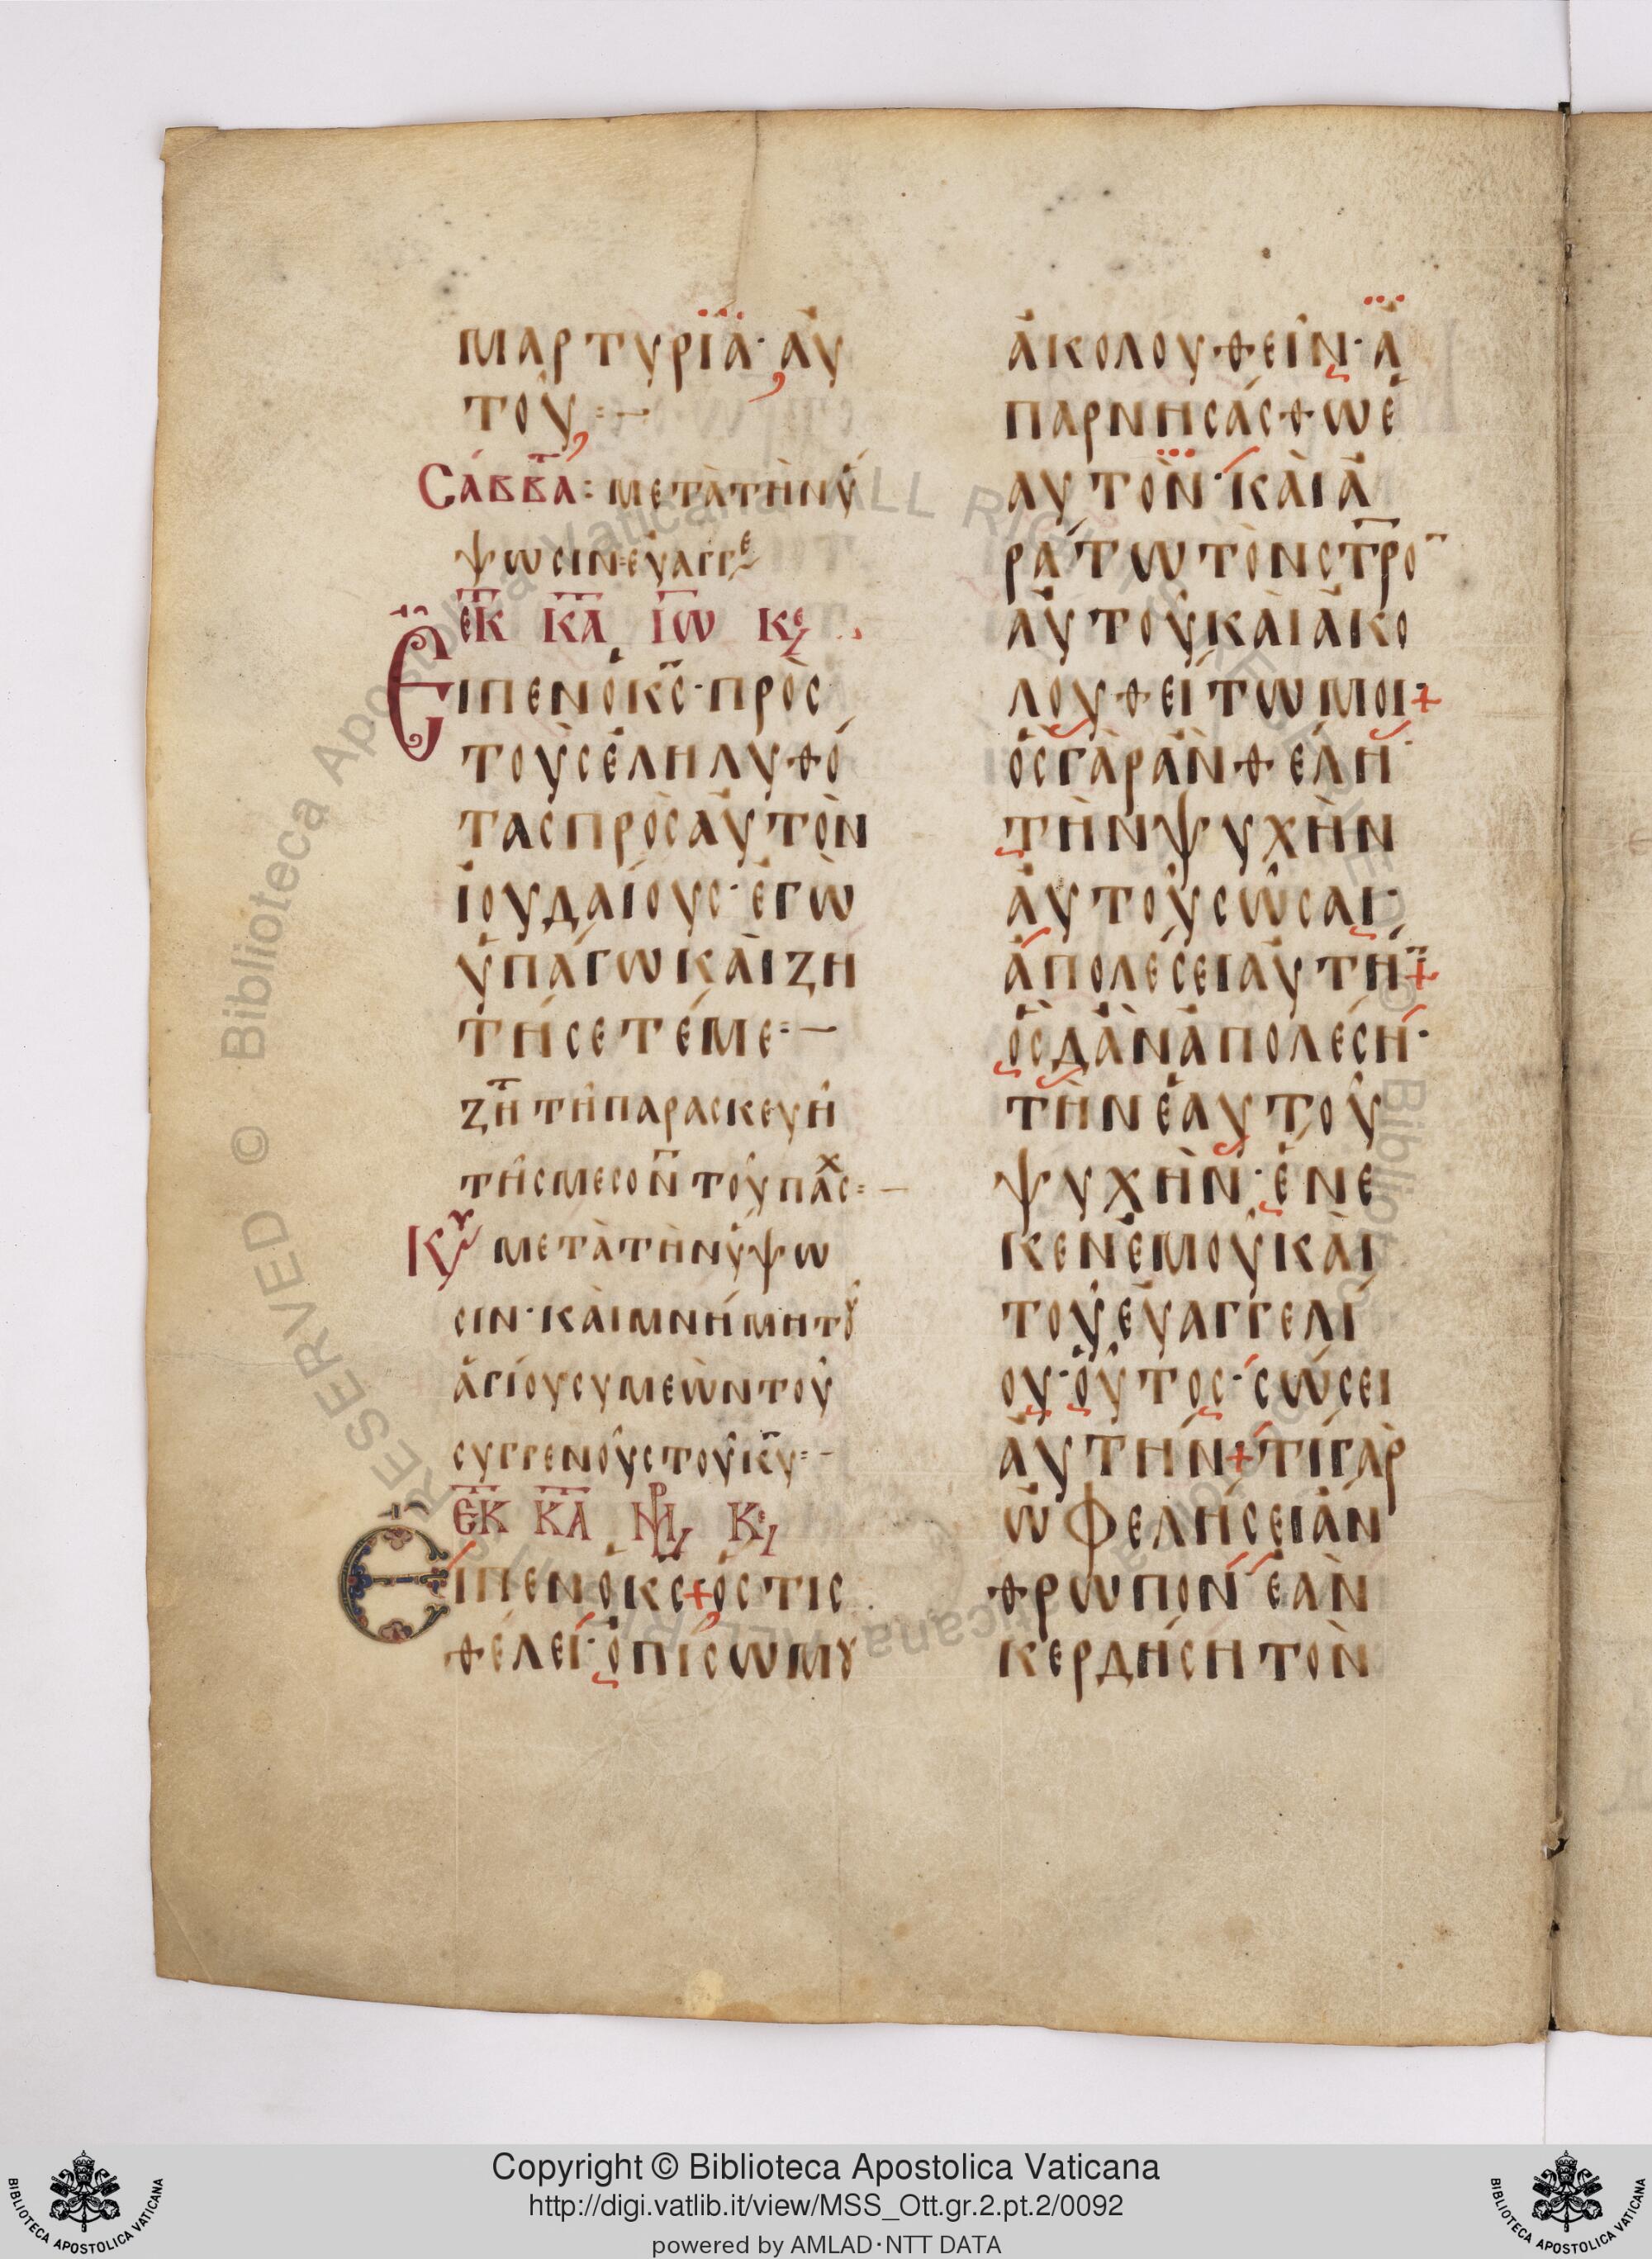 ΜΑΡΤΥΡΪΑ· ΑΥ
ΤΟΥ:—
ΣΑΒΒΑ: ΜΕΤΑ ΤΗΝ Υ
ΨΩΣΙΝ· ΕΥΑΓΓΕ
ΕΚ ΚΑ ΙΩ ΚΕ
ΕΙΠΕΝ Ο ΚΣ· ΠΡΟΣ
ΤΟΥΣ ΕΛΗΛΥΘΟ
ΤΑΣ ΠΡΟΣ ΑΥΤΟΝ
ΙΟΥΔΑΙΟΥΣ· ΕΓΩ
ΥΠΑΓΩ ΚΑΙ ΖΗ
ΤΗΣΕΤΕ ΜΕ:—
ΖΗΤ ΤΗ ΠΑΡΑΣΚΕΥΗ
ΤΗΣ ΜΕΣΟΝ ΤΟΥ ΠΑΣΧ:—
ΚΥ ΜΕΤΑ ΤΗΝ ΥΨΩ
ΣΙΝ· ΚΑΙ ΜΝΗΜΗ ΤΟΥ
ΑΓΙΟΥ ΣΥΜΕΩΝ ΤΟΥ
ΣΥΓΓΕΝΟΥΣ ΤΟΥ ΚΥ:—
ΕΚ ΚΑ ΜΡ ΚΕ
ΕΙΠΕΝ Ο ΚΣ+ΟΣΤΙΣ
ΘΕΛΕΙ· ΟΠΙΣΩ ΜΟΥ
ΑΚΟΛΟΥΘΕΙΝ· Α
ΠΑΡΝΗΣΑΣΘΩ Ε
ΑΥΤΟΝ· ΚΑΙ Α
ΡΑΤΩ ΤΟΝ ΣΤΡΟ
ΑΥΤΟΥ ΚΑΙ ΑΚΟ
ΛΟΥΘΕΙΤΩ ΜΟΙ+
ΟΣ ΓΑΡ ΑΝ ΘΕΛΗ
ΤΗΝ ΨΥΧΗΝ
ΑΥΤΟΥ ΣΩΣΑΙ·
ΑΠΟΛΕΣΕΙ ΑΥΤΗ+
ΟΣ Δ ΑΝ ΑΠΟΛΕΣΗ·
ΤΗΝ ΕΑΥΤΟΥ
ΨΥΧΗΝ· ΕΝΕ
ΚΕΝ ΕΜΟΥ ΚΑΙ
ΤΟΥ ΕΥΑΓΓΕΛΙ
ΟΥ· ΟΥΤΟΣ· ΣΩΣΕΙ
ΑΥΤΗΝ+ΤΙ ΓΑΡ
ΩΦΕΛΗΣΕΙ ΑΝ
ΘΡΩΠΟΝ ΕΑΝ
ΚΕΡΔΗΣΗ ΤΟΝ
Copyright © Biblioteca Apostolica Vaticana
http://digi.vatlib.it/view/MSS_Ott.gr.2.pt.2/0092
powered by AMLAD·NTT DATA
BIBLIOTECA APOSTOLICA VATICANA
BIBLIOTECA APOSTOLICA VATICANA